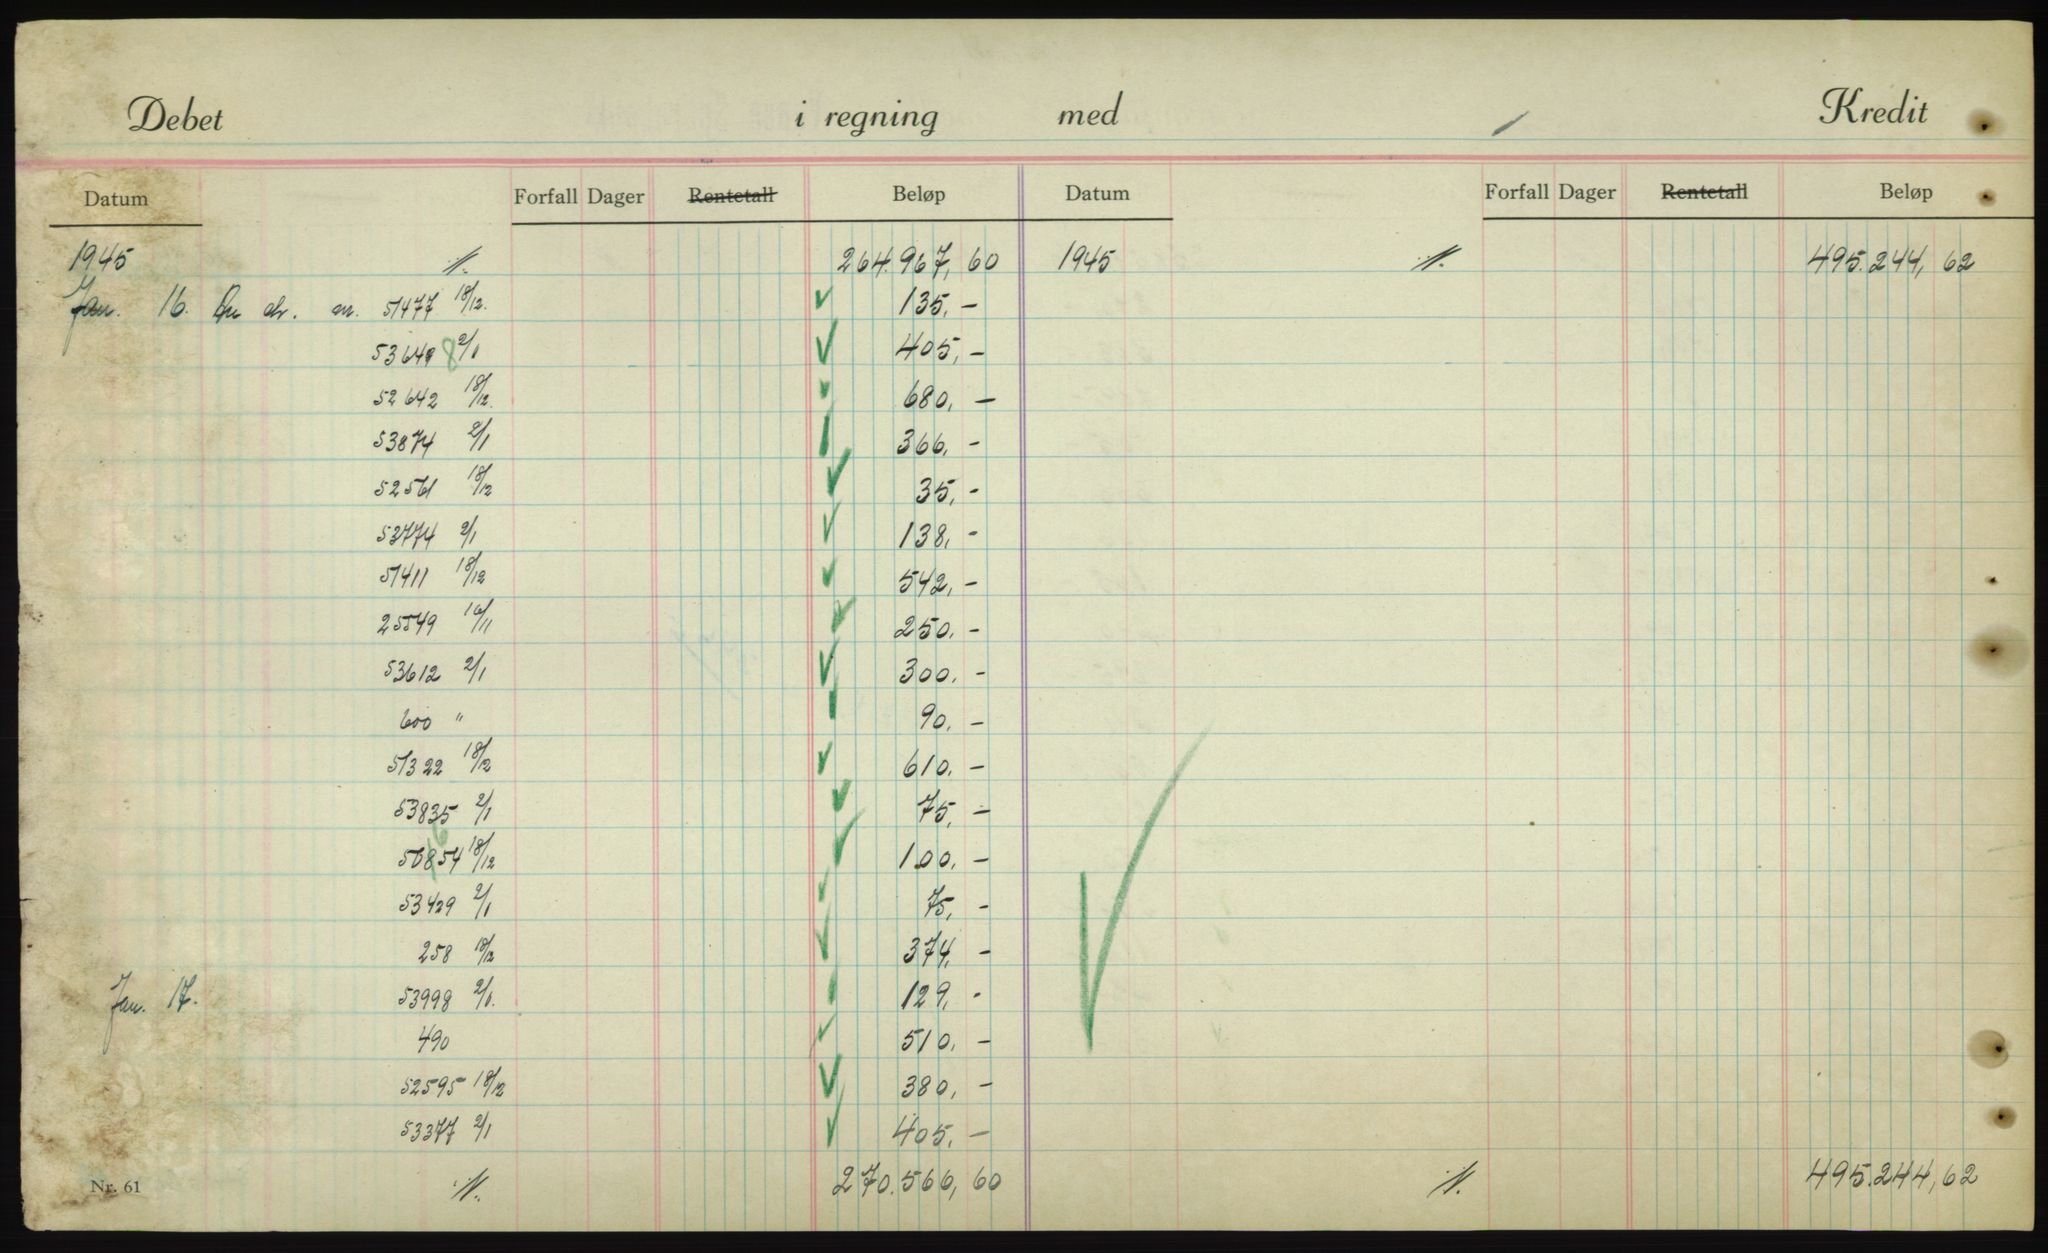 Debet i regning med Kredit
Datum Forfall Dager Rentetall Beløp Datum Forfall Dager Rentetall Beløp
1945 264.967,60 1945 495.244,62
Jan. 16. an. 51477 18/12. 135,-
53648 2/1 405,-
52642 18/12. 680,-
53874 2/1 366,-
52561 18/12 35,-
53774 2/1 138,-
51411 18/12 542,-
25549 16/11 250,-
53612 2/1 300,-
600 " 90,-
51322 18/12 610,-
53835 2/1 75,-
18/12 100,-
53429 2/1 75,-
258 18/12 374,-
Jan. 17. 53998 2/1. 129,-
490 510,-
52595 18/12 380,-
53377 2/1 405,-
Nr. 61 270.566,60 495.244,62